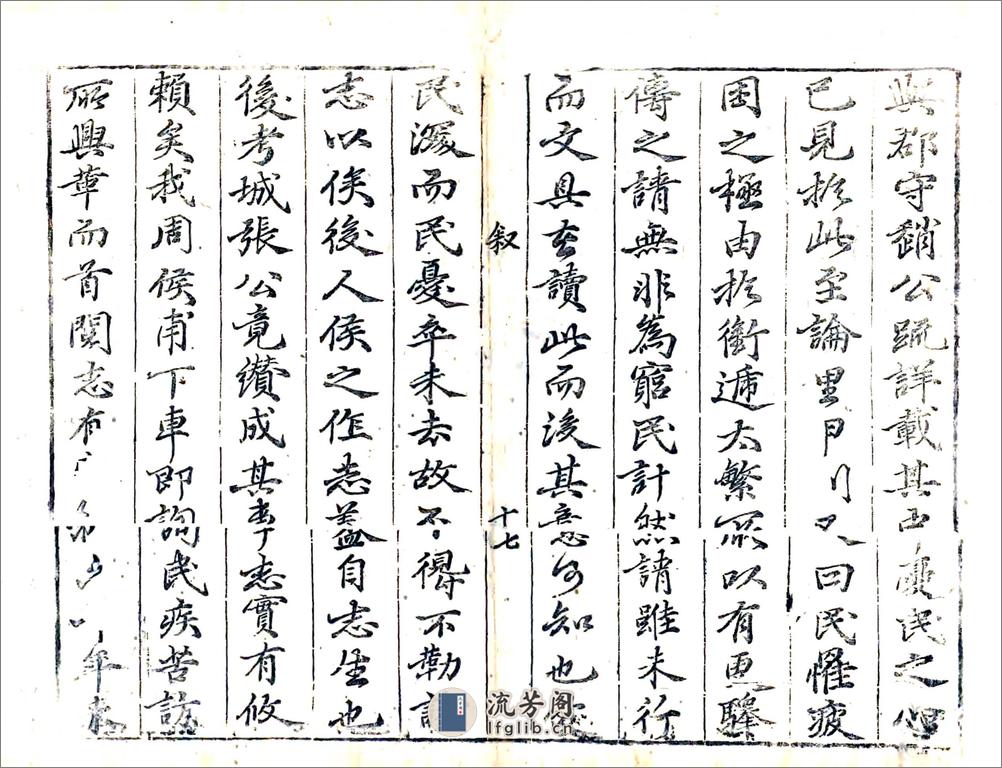 與郡守趙公疏詳載其中憂民之心
已見於此至論里曰民罹疲
困之極由於衝遞太繁所以有更驛
傳之請無非為窮民計然請雖未行
而文具在讀此而後其意可知也
叙
十七
民瘼而民憂卒未去故不得不勒諸
志以俟後人侯之作志蓋自志生也
後考城張公竟纘成其事志實有攸
賴矣我周侯甫下車即詢民疾苦訪
所興革而首閱志有年來
流芳阁
lfglib.cn